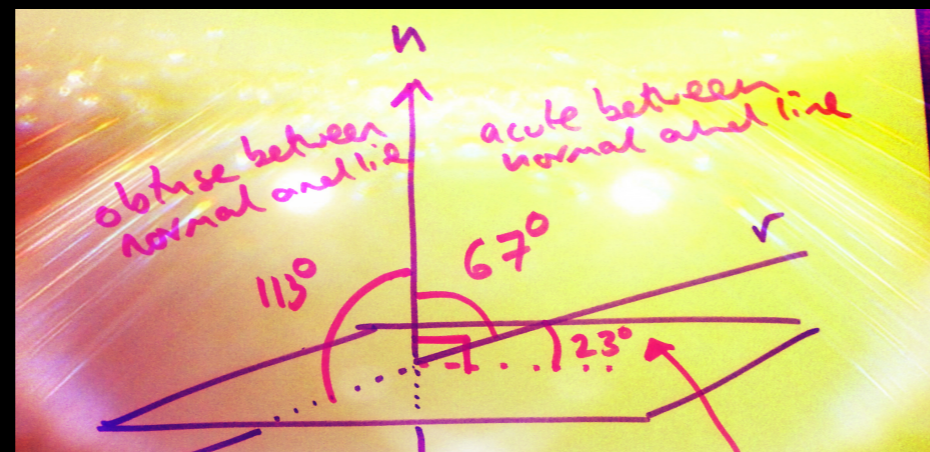 n
obtuse between
normal and lie
acute between
normal and line
113°
67°
r
23°